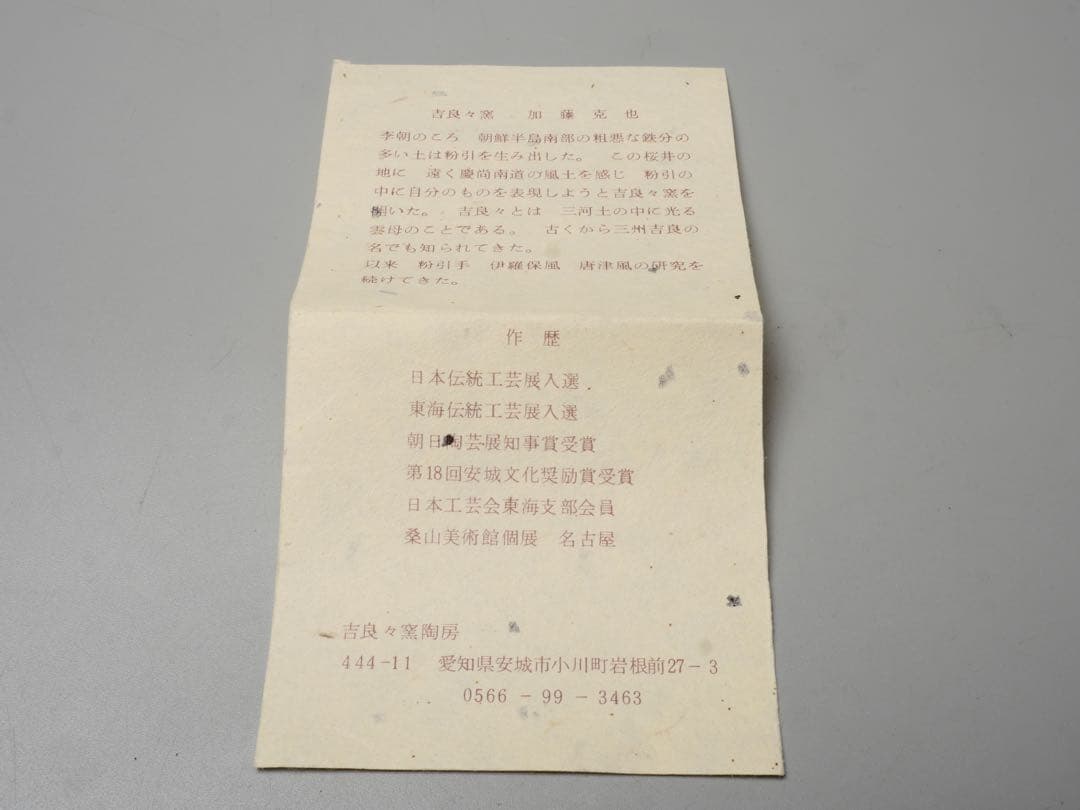 吉良々窯　加藤克也
李朝のころ　朝鮮半島南部の粗悪な鉄分の
多い土は粉引を生み出した。　この桜井の
地に　遠く慶尚南道の風土を感じ　粉引の
中に自分のものを表現しようと吉良々窯を
開いた。　吉良々とは　三河土の中に光る
雲母のことである。　古くから三州吉良の
名でも知られてきた。
以来　粉引手　伊羅保風　唐津風の研究を
続けてきた。
作歴
日本伝統工芸展入選
東海伝統工芸展入選
朝日陶芸展知事賞受賞
第18回安城文化奨励賞受賞
日本工芸会東海支部会員
桑山美術館個展　名古屋
吉良々窯陶房
444-11　愛知県安城市小川町岩根前27－3
0566－99－3463